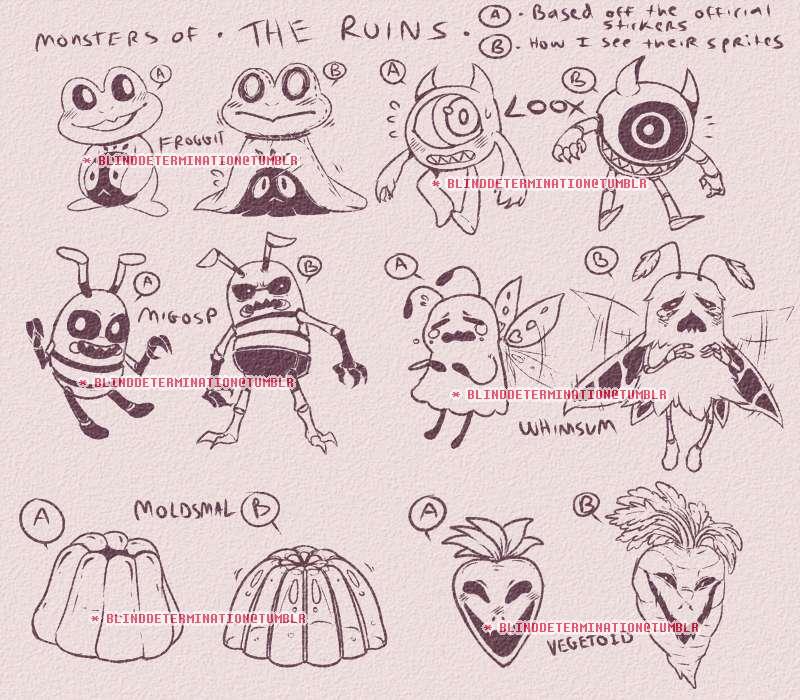 MONSTERS OF · THE RUINS ·
A · Based off the official stickers
B · How I see their sprites
A
B
FROGGIT
* BLINDDETERMINATION@TUMBLR
A
LOOX
B
* BLINDDETERMINATION@TUMBLR
A
MIGOSP
B
* BLINDDETERMINATION@TUMBLR
A
B
* BLINDDETERMINATION@TUMBLR
WHIMSUM
A
MOLDSMAL
B
* BLINDDETERMINATION@TUMBLR
A
B
* BLINDDETERMINATION@TUMBLR
VEGETOID